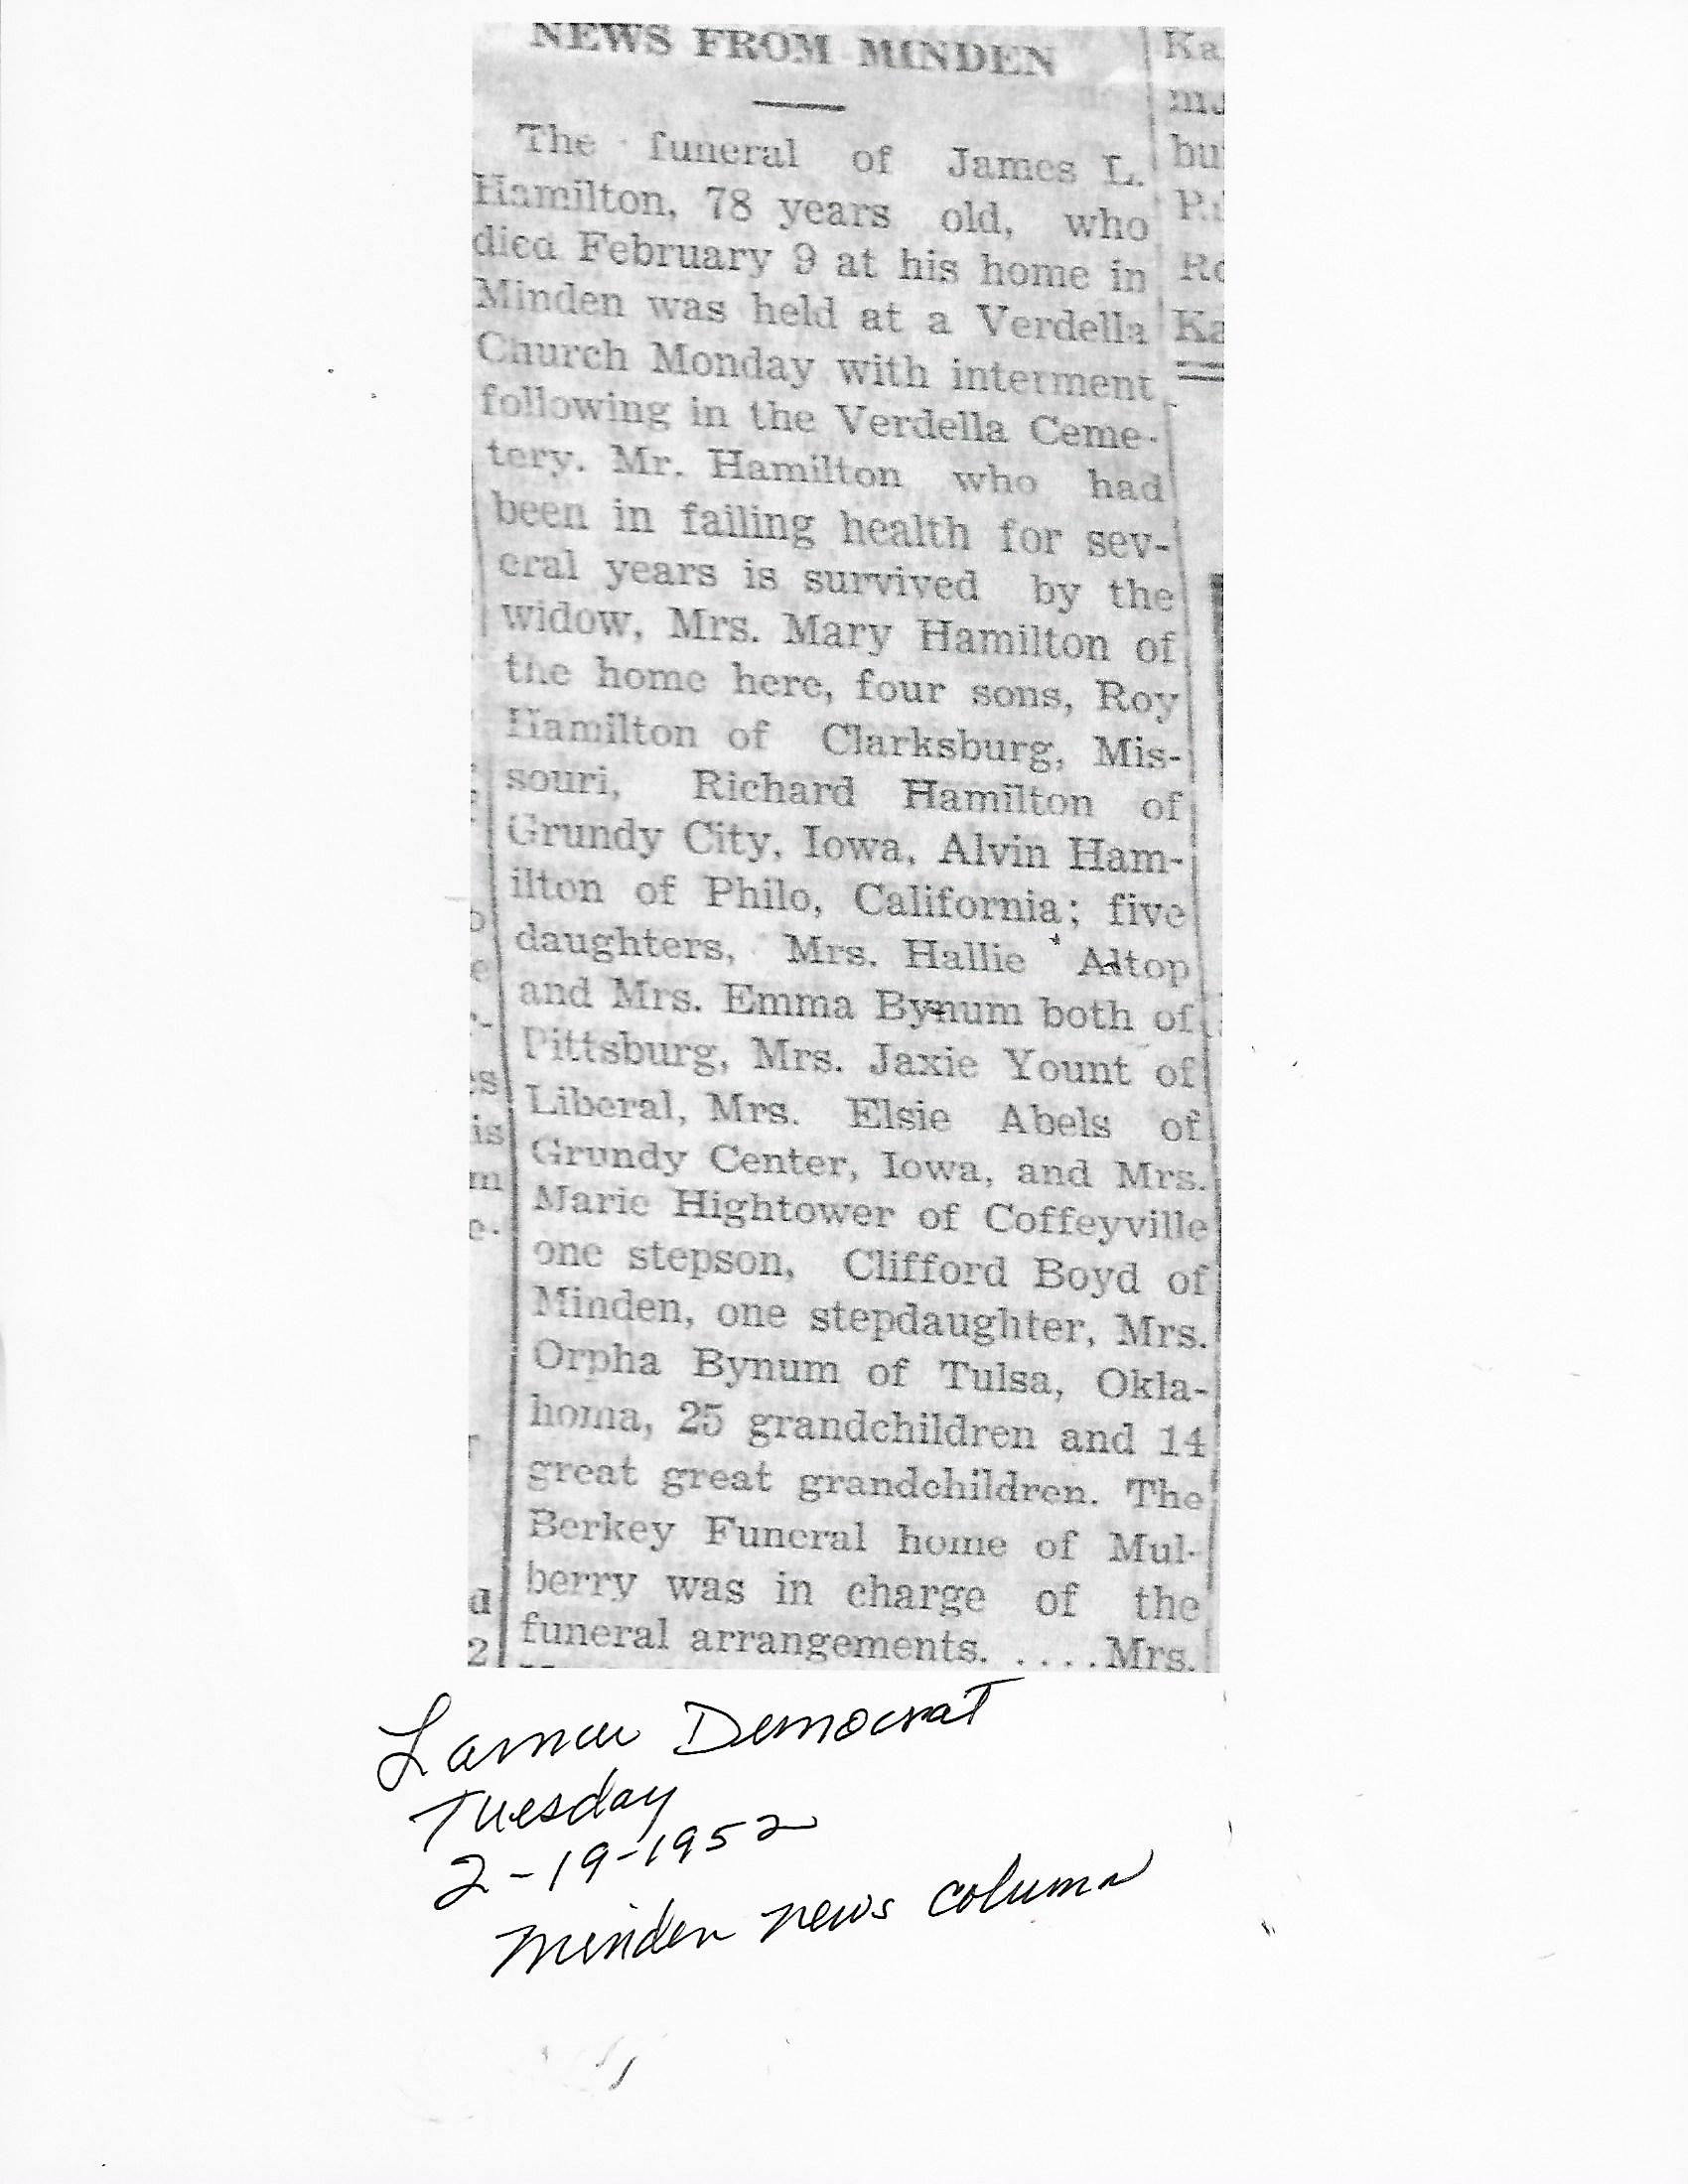 NEWS FROM MINDEN
The funeral of James L.
Hamilton, 78 years old, who
died February 9 at his home in
Minden was held at a Verdella
Church Monday with interment
following in the Verdella Ceme-
tery. Mr. Hamilton who had
been in failing health for sev-
eral years is survived by the
widow, Mrs. Mary Hamilton of
the home here, four sons, Roy
Hamilton of Clarksburg, Mis-
souri, Richard Hamilton of
Grundy City, Iowa, Alvin Ham-
ilton of Philo, California; five
daughters, Mrs. Hallie Altop
and Mrs. Emma Bynum both of
Pittsburg, Mrs. Jaxie Yount of
Liberal, Mrs. Elsie Abels of
Grundy Center, Iowa, and Mrs.
Marie Hightower of Coffeyville
one stepson, Clifford Boyd of
Minden, one stepdaughter, Mrs.
Orpha Bynum of Tulsa, Okla-
homa, 25 grandchildren and 14
great great grandchildren. The
Berkey Funeral home of Mul-
berry was in charge of the
funeral arrangements. ....Mrs.
Lamar Democrat
Tuesday
2-19-1952
Minden news column